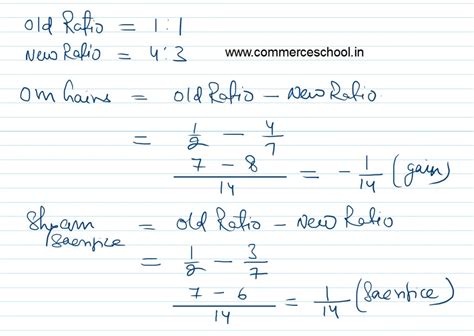 Old Ratio = 1:1
New Ratio = 4:3
www.commerceschool.in
Om Gains = Old Ratio - New Ratio
= 1/2 - 4/7
7 - 8 / 14 = - 1/14 (gain)
Shyam Sacrifice = Old Ratio - New Ratio
= 1/2 - 3/7
7 - 6 / 14 = 1/14 (Sacrifice)